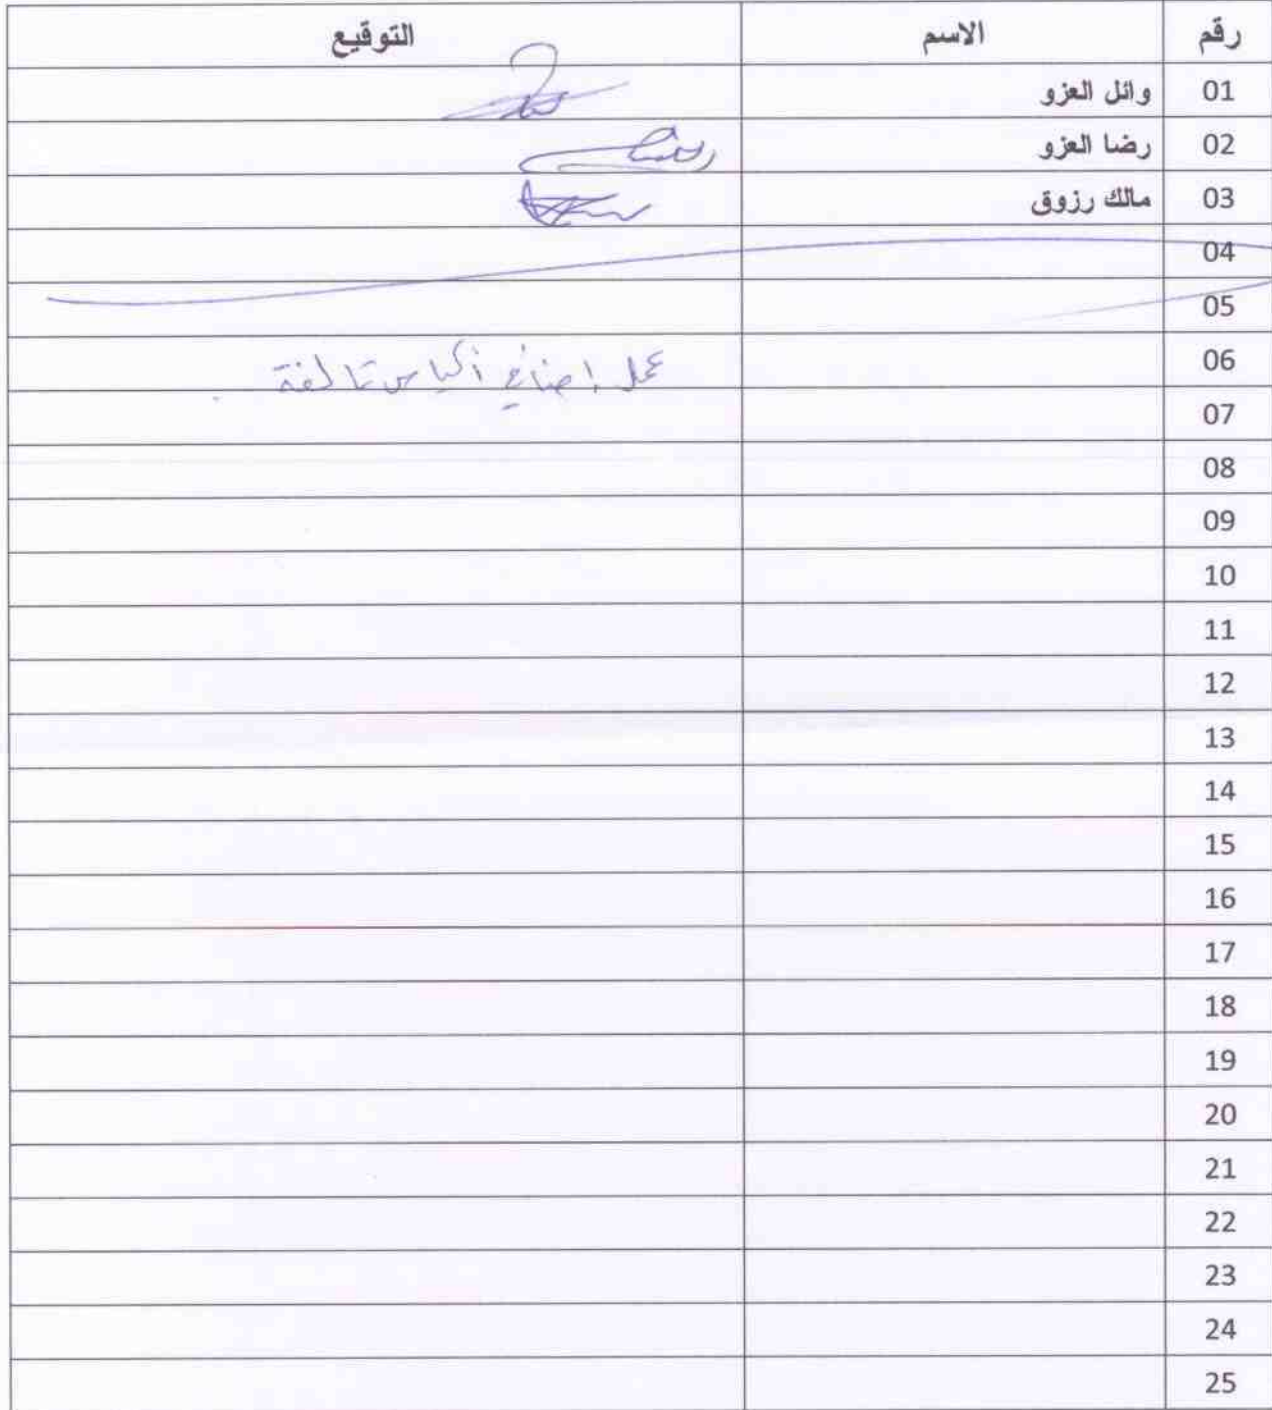 رقم الاسم التوقيع
01 وائل العزو
02 رضا العزو
03 مالك رزوق
04
05
06 عمل إضافي أكياس تالفة .
07
08
09
10
11
12
13
14
15
16
17
18
19
20
21
22
23
24
25